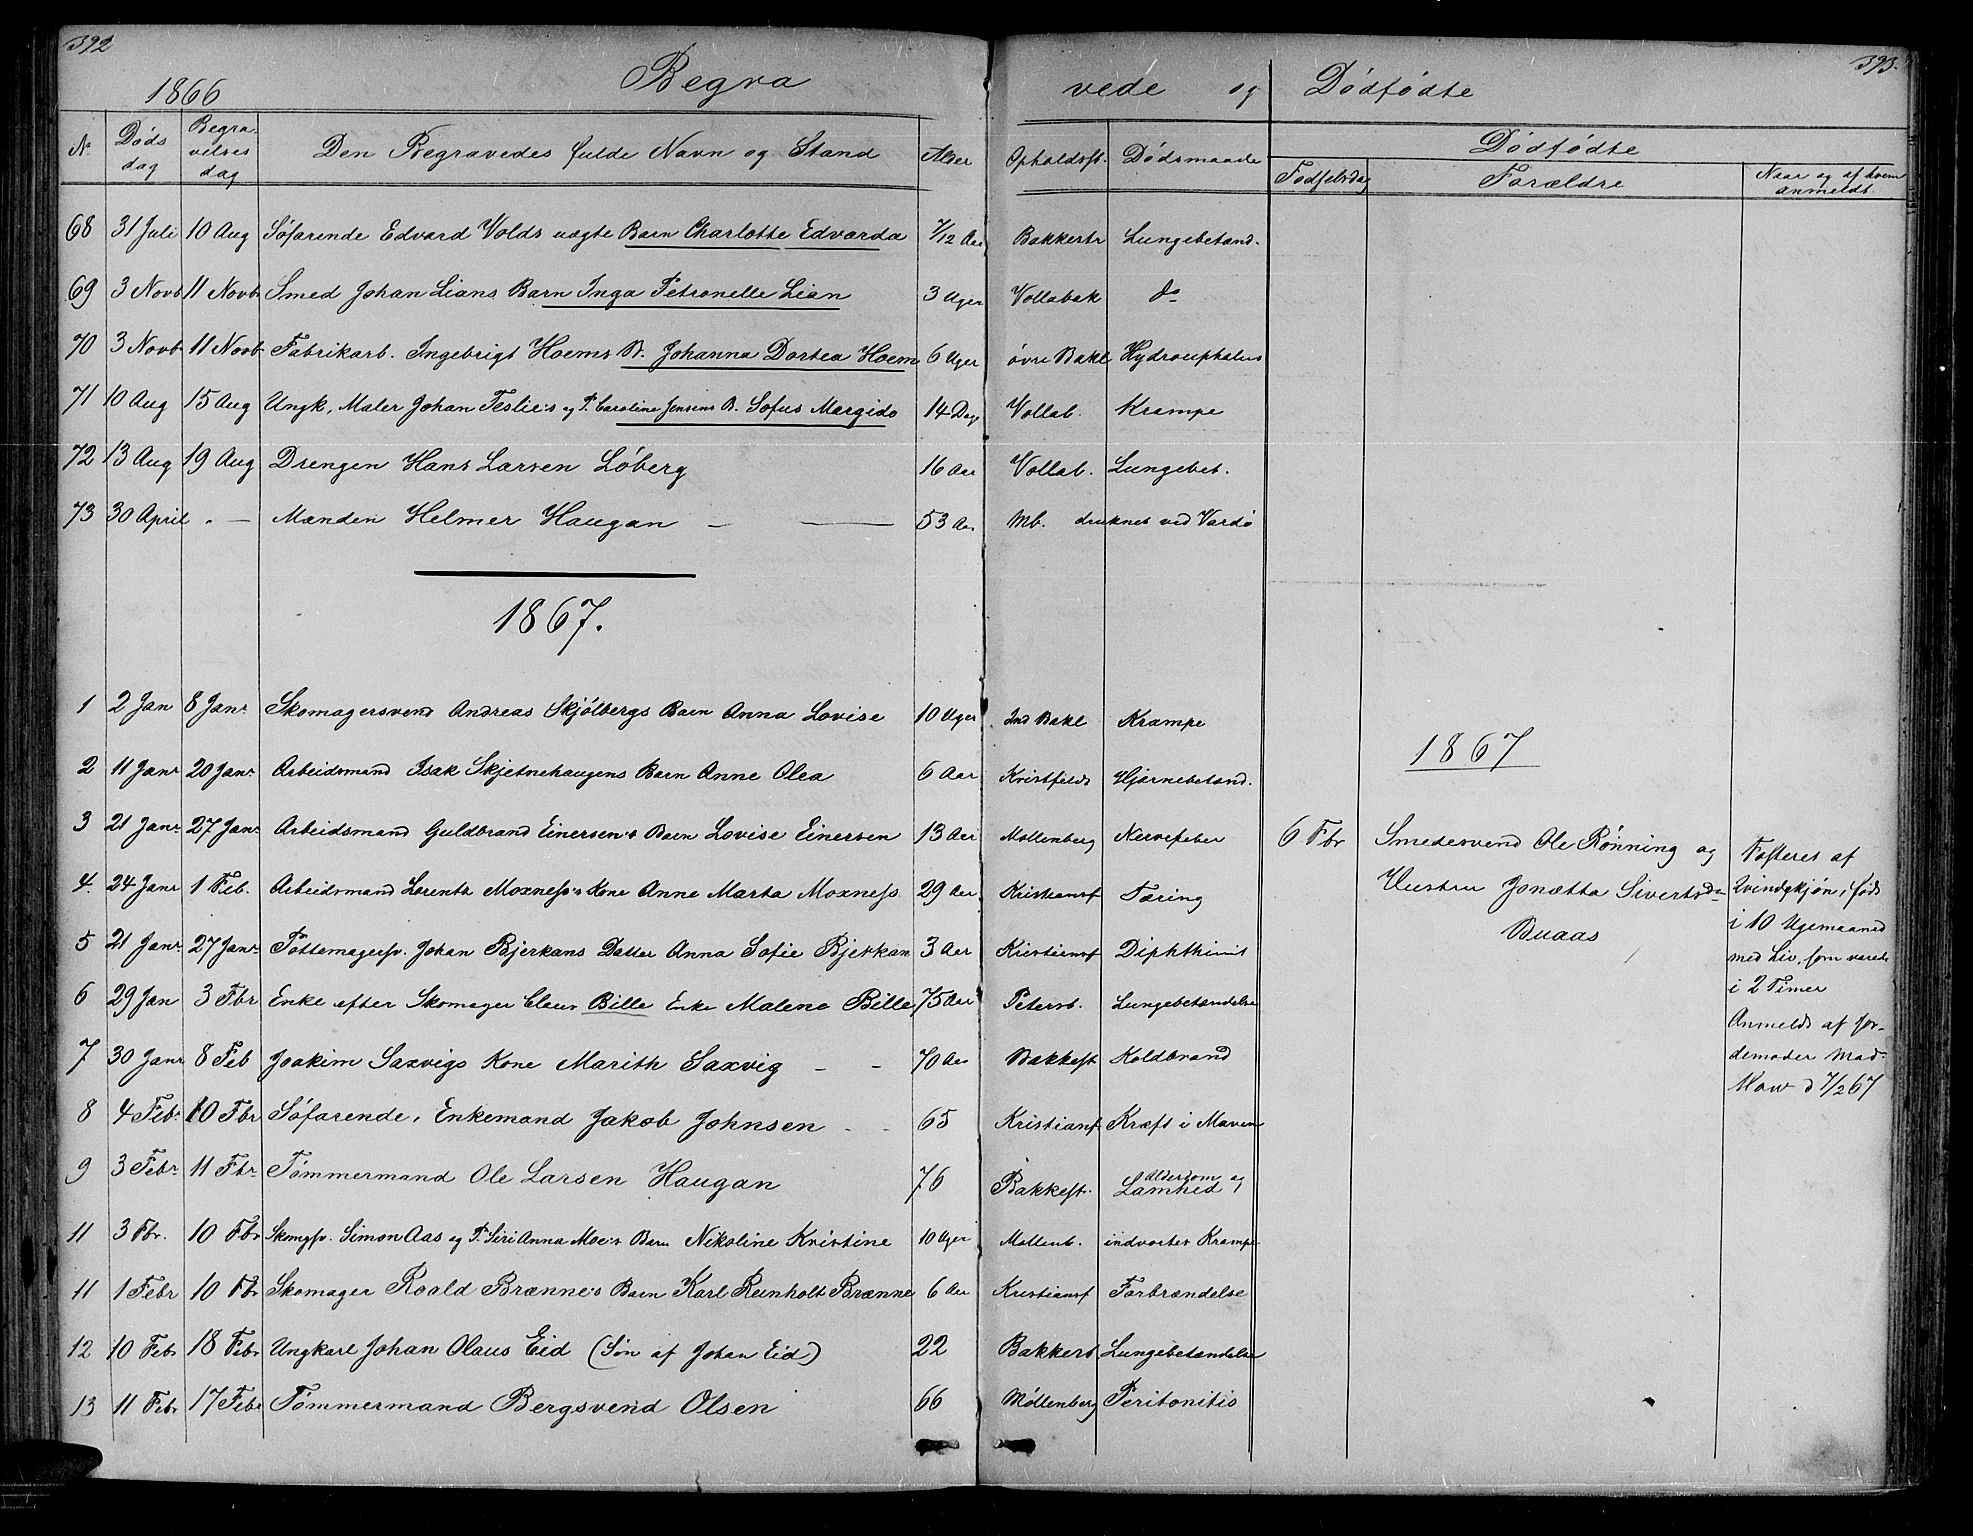 392
393.
1866
Begra
vede og Dødfødte
N. Døds dag Begravelses dag Den Begravedes fulde Navn og Stand Alder Opholdsst. Dødsmaade Dødfødte
Fødselsdag Forældre Naar og af hvem anmeldt.
68 31 Juli 10 Aug Søfarende Edvard Volds uægte Barn Charlotte Edvarda 7/12 Aar Bakkestr Lungebetænd.
69 3 Novb 11 Novb Smed Johan Lians Barn Inga Petronelle Lian 3 Uger Vollabak do
70 3 Novb 11 Novb Fabrikarb. Ingebrigt Hoems B. Johanna Dortea Hoem 6 Uger øvre Bakl Hydrocephalus
71 10 Aug 15 Aug Ungk. Maler Johan Teslie's og P. Caroline Jensens B. Sofus Margido 14 Dag Vollab. Krampe
72 13 Aug 19 Aug Drengen Hans Larsen Løberg 16 Aar Vollab. Lungebet.
73 30 April " — Manden Helmer Haugan — — 53 Aar Mb. druknet ved Vardø
1867.
1 2 Jan 8 Janr Skomagersvend Andreas Skjølbergs Barn Anna Lovise 10 Uger Ind Bakl Krampe
1867
2 11 Janr 20 Janr Arbeidsmand Isak Skjetnehaugens Barn Anne Olea 6 Aar Kristfelds Hjernebetænd.
3 21 Janr 27 Janr Arbeidsmand Guldbrand Einersen's Barn Lovise Einersen 13 Aar Mollenberg Nervefeber
6 Fbr Smedesvend Ole Rønning og
Hustru Jonætta Sivertsdr
Buaas
Fosteret af
Qvindekjøn, født
i 10 Ugemaaned
med Liv, som varede
i 2 Timer
Anmeldt af Jor-
demoder Mad.
Kow d 7/2 67
4. 24 Janr 1 Feb. Arbeidsmand Lorents Moxness's Kone Anne Marta Moxness 29 Aar Kristiansf Tæring
5 21 Janr 27 Janr Pottemagersv. Johan Bjerkans Datter Anna Sofie Bjerkan 3 Aar Kristiansf Diphtherit
6 29 Jan 3 Fbr Enke efter Skomager Claus Bille Enke Malene Bille 75 Aar Petersb. Lungebetændelse
7 30 Janr 8 Feb Joakim Saxvigs Kone Marith Saxvig — — 70 Aar Bakkest Koldbrand
8 4 Febr 10 Fbr Søfarende, Enkemand Jakob Johnsen - - 65 Kristiansf. Kræft i Maven
9 3 Febr 11 Fbr Tømmermand Ole Larsen Haugan 76 Bakkest. Alderdom og Lamhed
11 3 Fbr. 10 Fbr Skomgsv. Simon Aas og P. Siri Anna Moe's Barn Nikoline Kristine 10 Uger Mollenb. indvortes Krampe
11 1 Febr 10 Fbr Skomager Roald Brænne's Barn Karl Reinholt Brænne 6 Aar Kristiansf Forbrændelse
12 10 Febr 18 Febr Ungkarl Johan Olaus Eid (Søn af Johan Eid) 22 Bakkest Lungebetændelse
13 11 Febr 17 Febr Tømmermand Bergsvend Olsen 66 Møllenberg Peritonitis